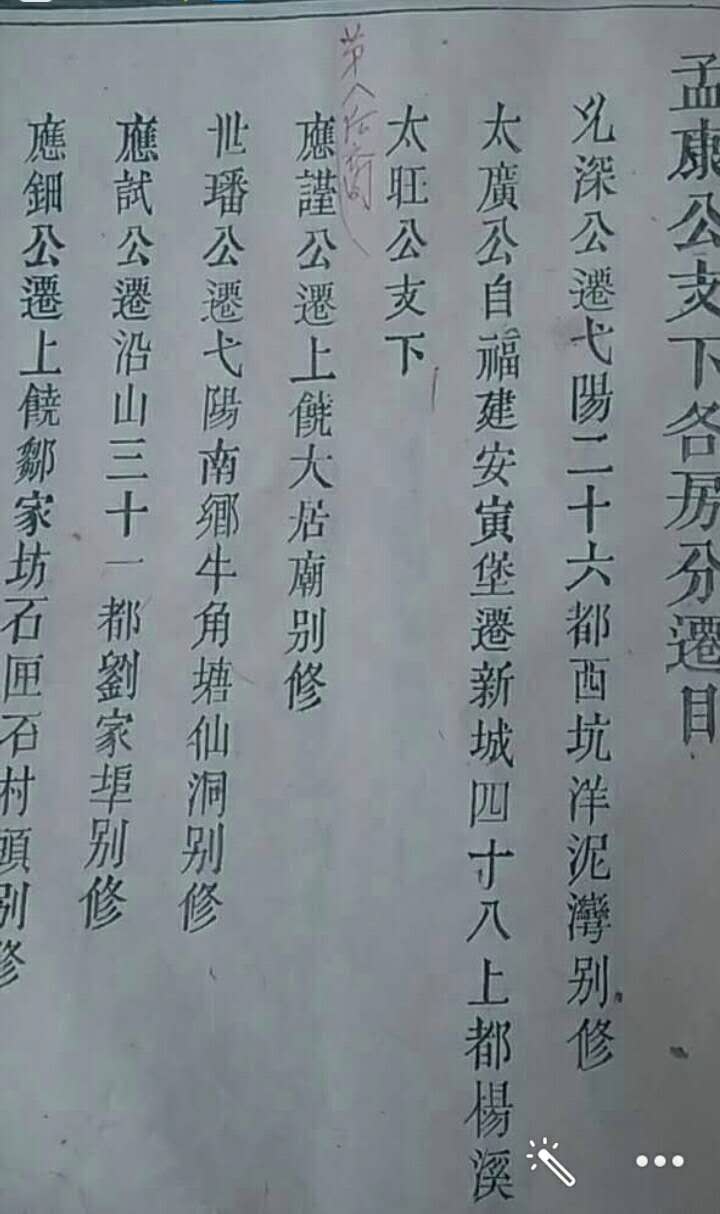 孟康公支下各房分遷目
允深公遷弋陽二十六都西坑洋泥灣别修
太廣公自福建安寅堡遷新城四十八上都楊溪
太旺公支下
應謹公遷上饒大居廟别修
世璠公遷弋陽南鄉牛角塘仙洞别修
應試公遷沿山三十一都劉家埠别修
應鈿公遷上饒鄒家坊石匣石村頭别修